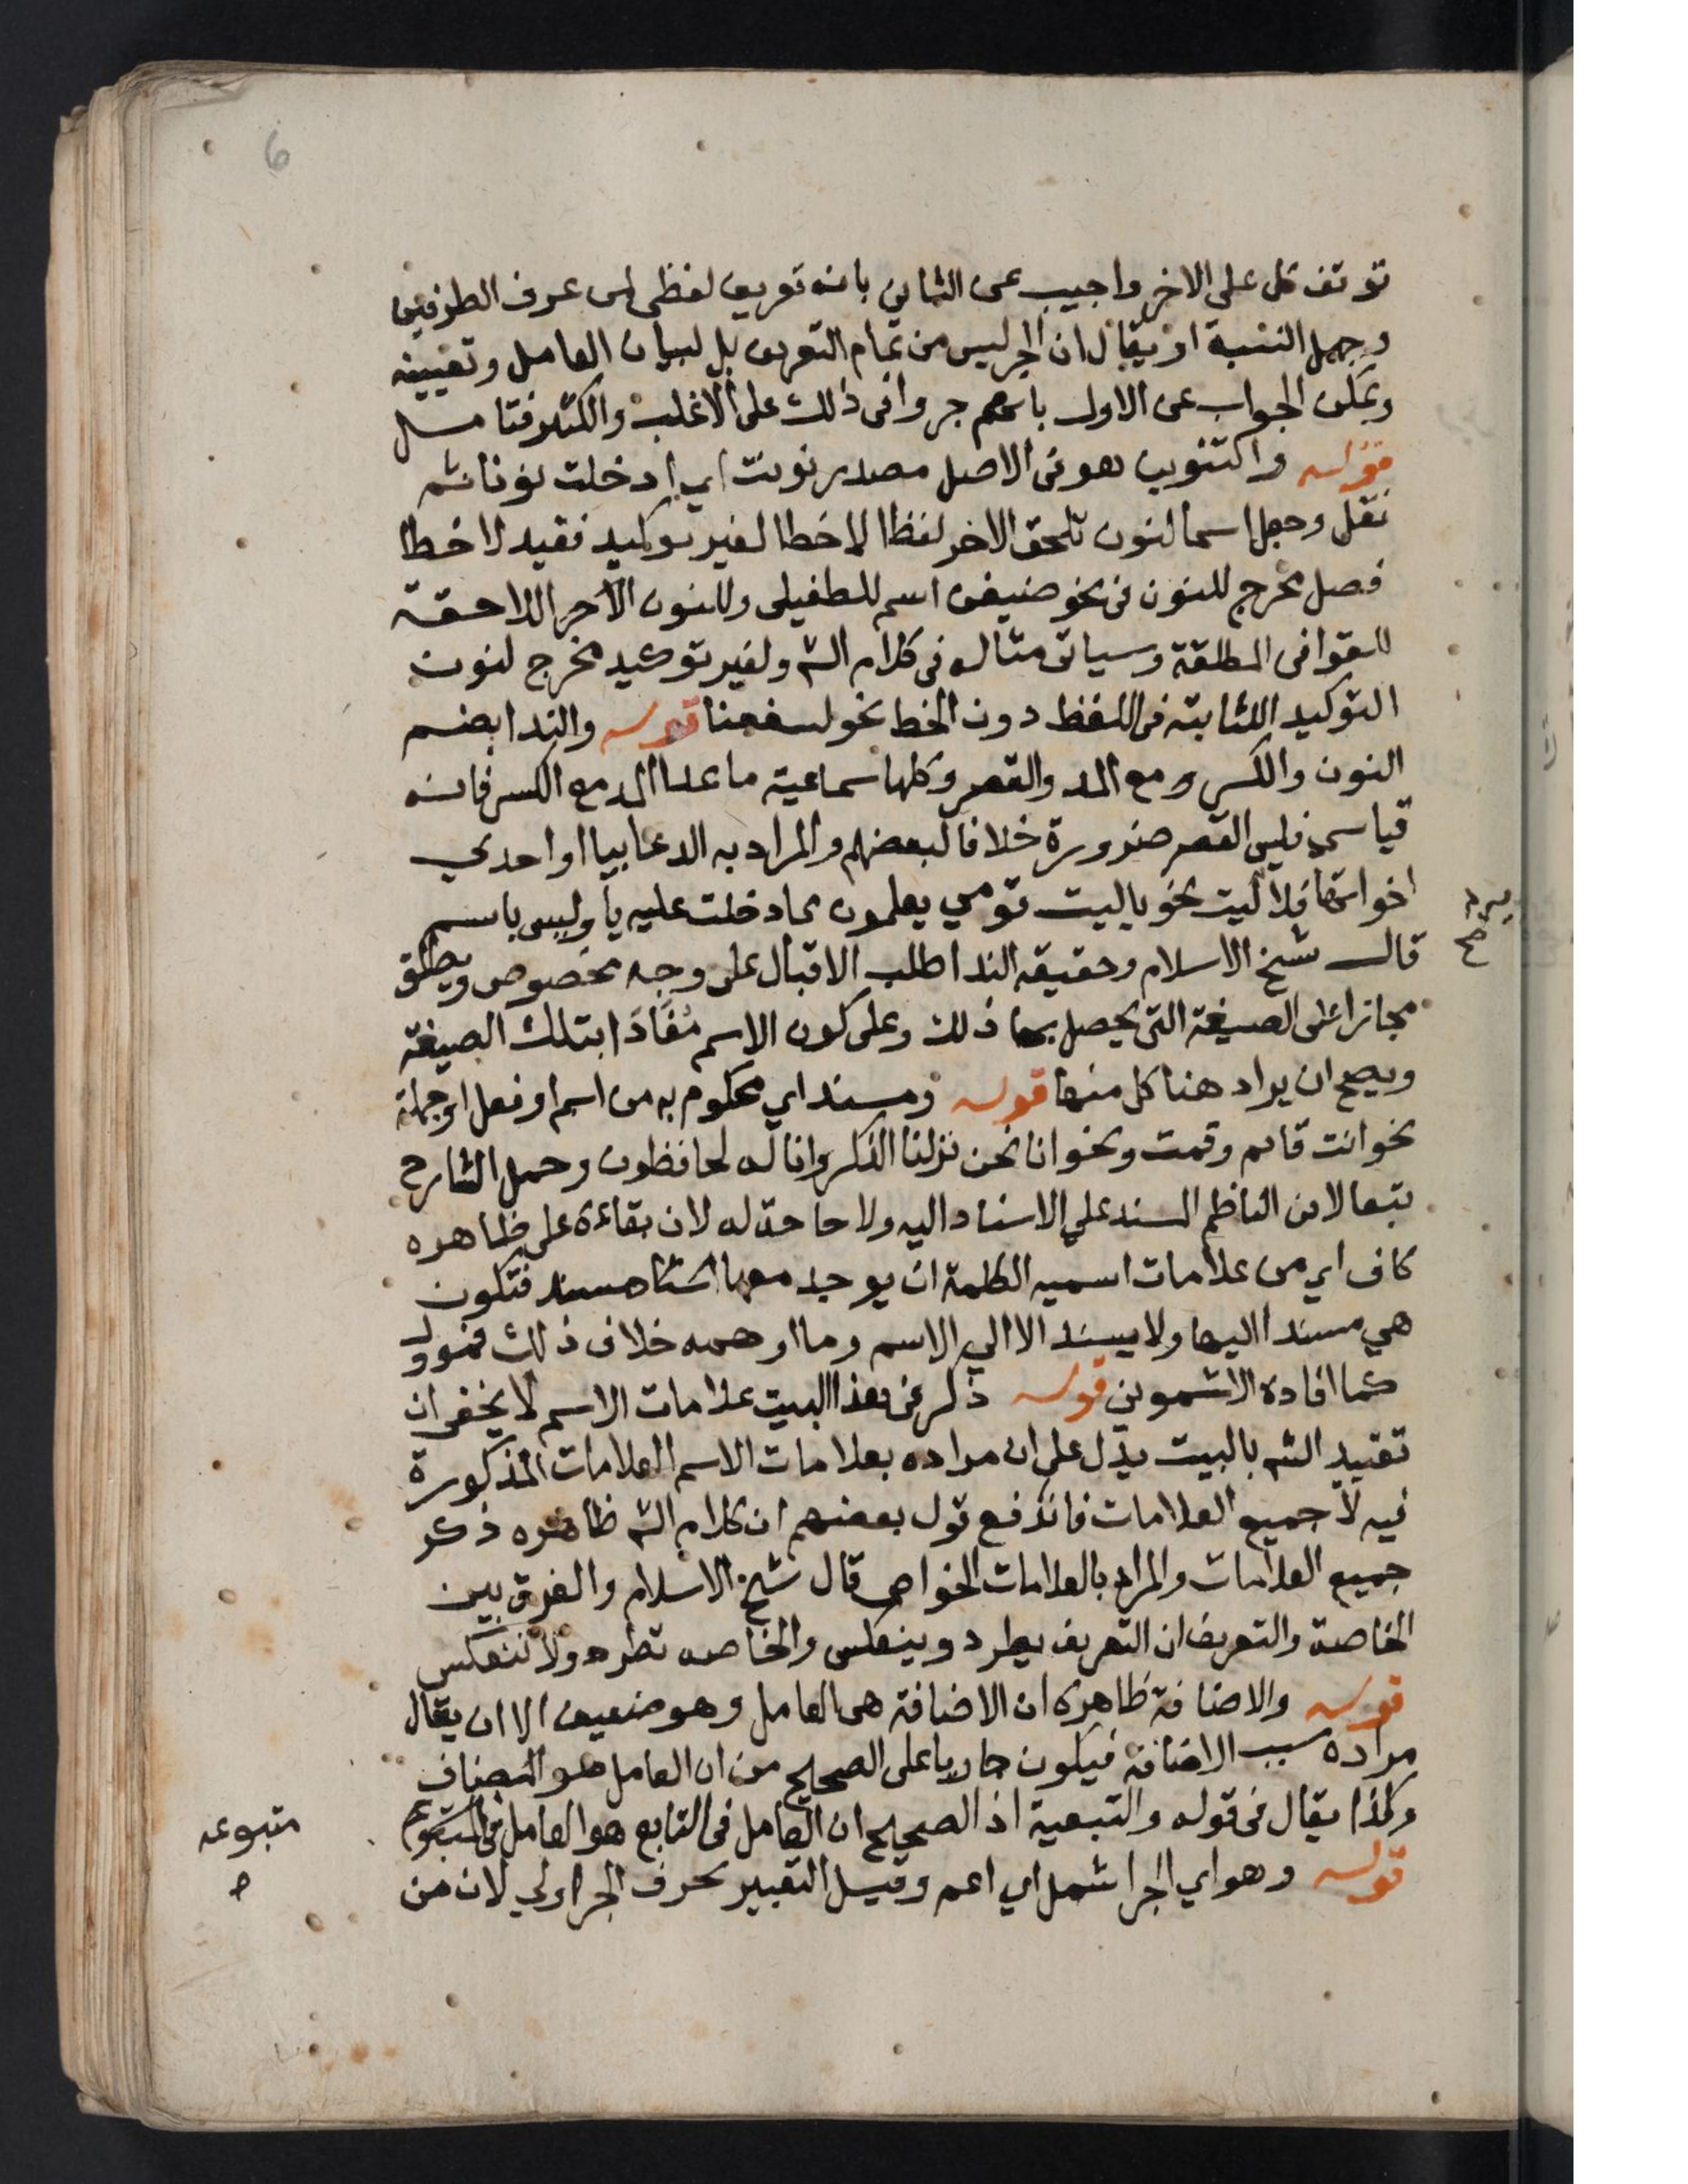 6
توقف كل على الاخر واجيب عن الثاني بانه تعريف لفظى لمن عرف الطرفين
وجهل النسبة او يقال ان الجر ليس من تمام التعريف بل لبيان العامل وتعيينه
ويمكن الجواب عن الاول بانهم جروا فى ذلك على الاغلب والكثير فتامل
قوله والتنوين هو فى الاصل مصدر نونت اي ادخلت نونا ثم
نقل وجعل اسما لنون تلحق الاخر لفظا لا خطا لغير توكيد فقيد لا خطا
فصل مخرج للنون فى نحو ضيفن اسم للطفيلى وللنون الاخر اللاحقة
للقوافى المطلقة وسياتى مثاله فى كلام الشـ ولغير توكيد مخرج لنون
التوكيد الثابتة فى اللفظ دون الخط نحو لنسفعنا قوله والندا بضم
النون والكسر ومع المد والقصر وكلها سماعية ما عدا المد مع الكسر فانه
قياسى فليس القصر ضرورة خلافا لبعضهم والمراد به الدعا بيا او احدي
اخواتها فلا ليت نحو ياليت قومي يعلمون مما دخلت عليه يا وليس باسم
يرد
صح
قال شيخ الاسلام وحقيقة الندا طلب الاقبال على وجه مخصوص ويطلق
مجازا على الصيغة التى يحصل بها ذلك وعلى كون الاسم مُنَادَا بتلك الصيغة
ويصح ان يراد هنا كل منها قوله ومسند اي محكوم به من اسم او فعل او جملة
نحو انت قايم وقمت ونحو انا نحن نزلنا الذكر وانا له لحافظون وحمل الشارح
تبعا لابن الناظم المسند على الاسناد اليه ولا حاجة له لان بقاءه على ظاهره
كاف اي من علامات اسمية الكلمة ان يوجد معها مسند فتكون
هي مسندا اليها ولا يسند الا الي الاسم وما اوهمه خلاف ذلك فموول
كما افاده الاشموني قوله ذكر فى هذا البيت علامات الاسم لا يخفى ان
تقييد الشـ بالبيت يدل على ان مراده بعلامات الاسم العلامات المذكورة
فيه لا جميع العلامات فاندفع قول بعضهم ان كلام الشـ ظاهره ذكر
جميع العلامات والمراد بالعلامات الخواص قال شيخ الاسلام والفرق بين
الخاصة والتعريف ان التعريف يطرد وينعكس والخاصه تطرد ولا تنعكس
قوله والاضافة ظاهره ان الاضافة هى العامل وهو ضعيف الا ان يقال
مراده سبب الاضافة فيكون جاريا على الصحيح من ان العامل هو المضاف
وكذا يقال فى قوله والتبعية اذ الصحيح ان العامل فى التابع هو العامل فى المتبوع
متبوعه
قوله وهو اي الجر اشمل اي اعم وقيل التعبير بحرف الجر اولي لان من